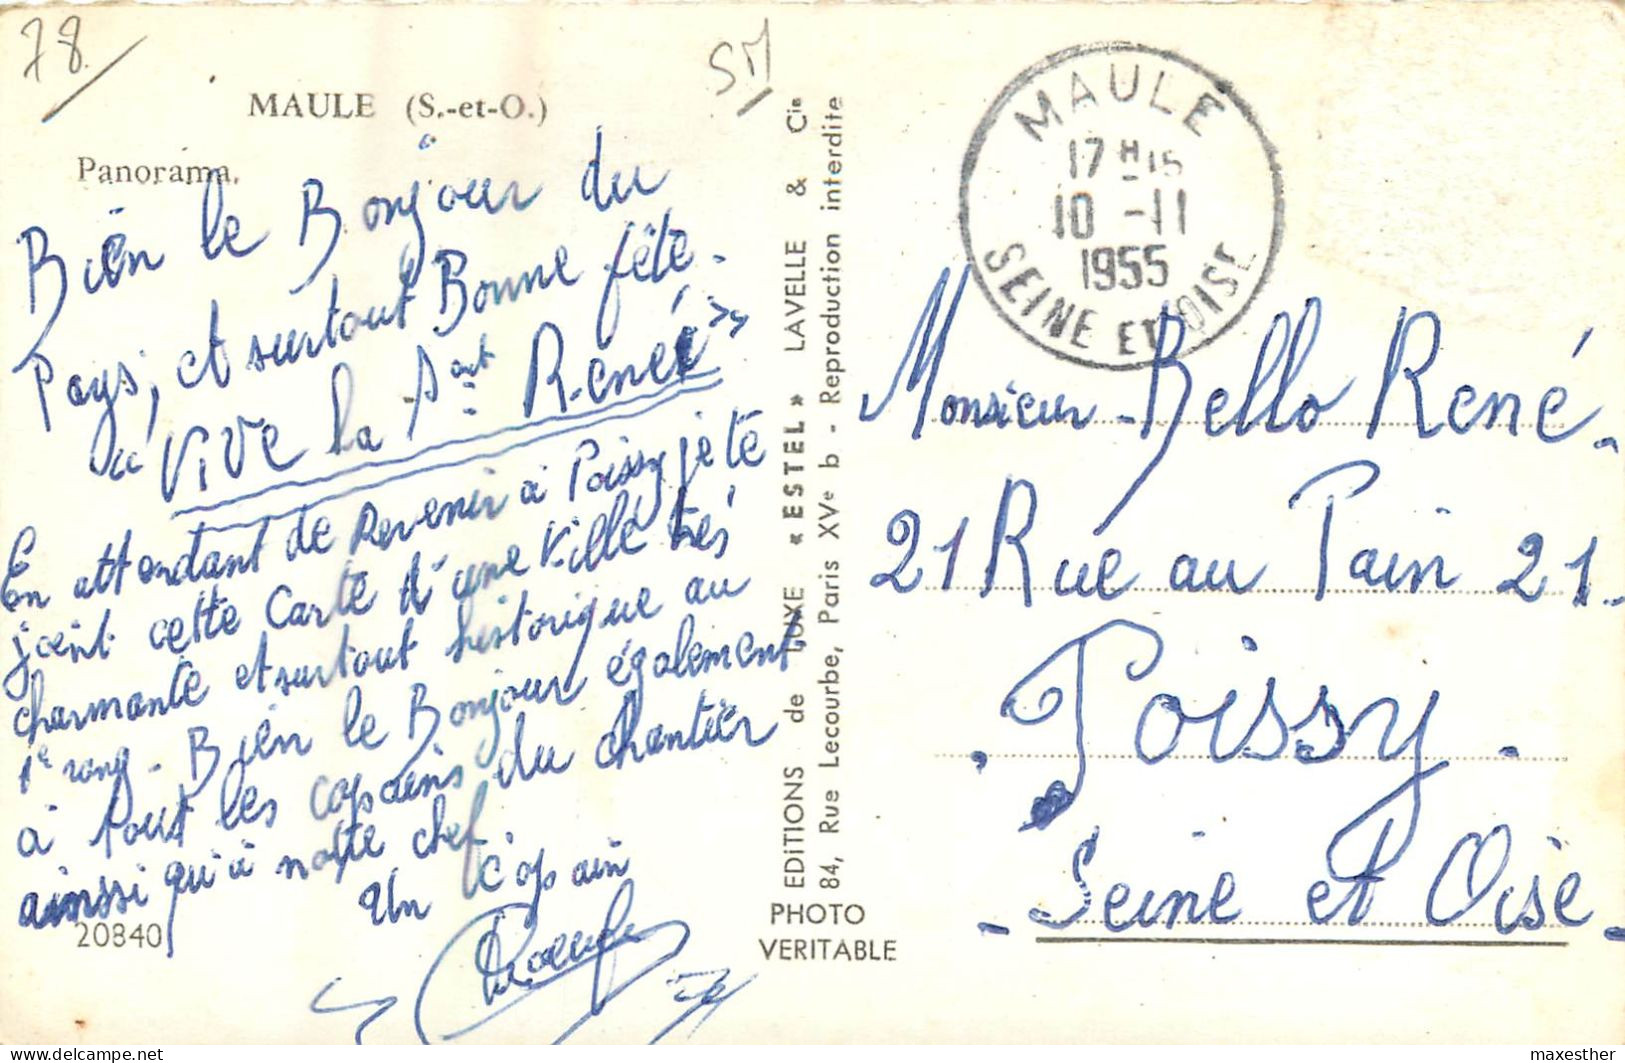 78
SM
MAULE (S.-et-O.)
Panorama.
Bien le Bonjour du
Pays, et surtout Bonne fête.
« VIVE la St René »
En attendant de Revenir à Poissy je te
joint cette Carte d'une Ville très
charmante et surtout historique au
1e rang - Bien le Bonjour également
à tout les copains du chantier
ainssi qu'à notre chef.
Un Copain
20840
EDITIONS de LUXE « ESTEL » LAVELLE & Cie
84, Rue Lecourbe, Paris XVe b - Reproduction interdite
PHOTO
VERITABLE
MAULE
17 H 15
10 -11
1955
SEINE ET OISE
Monsieur - Bello René -
21 Rue au Pain 21 -
. Poissy .
- Seine et Oise -
delcampe.net
maxesther